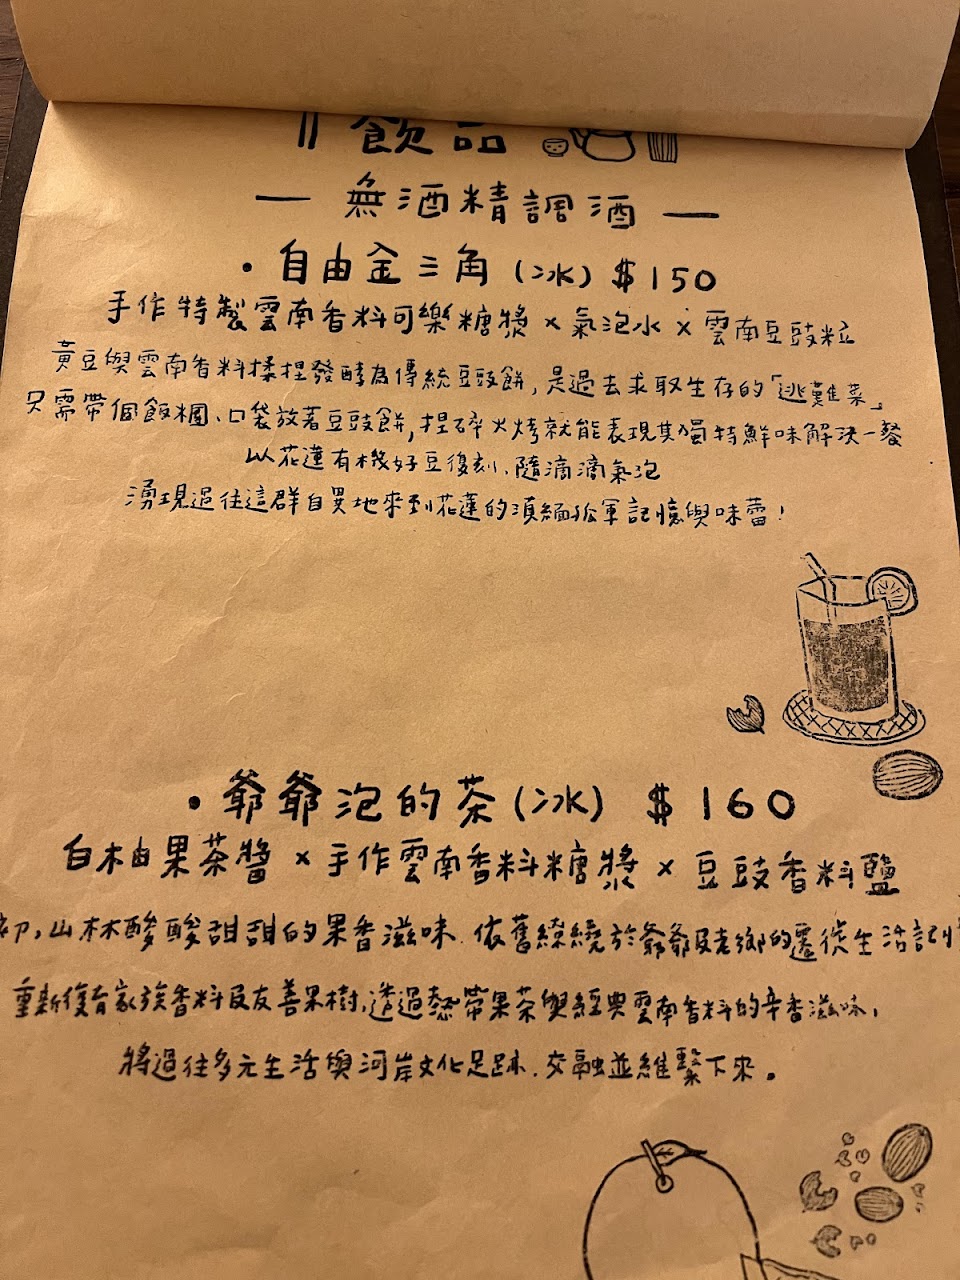 飲品
— 無酒精調酒 —
· 自由金三角 (冰) $150
手作特製雲南香料可樂糖漿 × 氣泡水 × 雲南豆豉粒
黃豆與雲南香料揉捏發酵為傳統豆豉餅, 是過去求取生存的「逃難菜」
只需帶個飯糰、口袋放著豆豉餅, 捏碎火烤就能表現其獨特鮮味解決一餐
以花蓮有機好豆復刻、隨滴滴氣泡
湧現過往這群自異地來到花蓮的滇緬孤軍記憶與味蕾!
· 爺爺泡的茶 (冰) $160
白柚果茶醬 × 手作雲南香料糖漿 × 豆豉香料鹽
初, 山林酸酸甜甜的果香滋味. 依舊繚繞於爺爺及老鄉的遷徙生活記
重新復育家族香料及友善果樹, 透過熱帶果茶與經典雲南香料的辛香滋味,
將過往多元生活與河岸文化足跡. 交融並維繫下來。